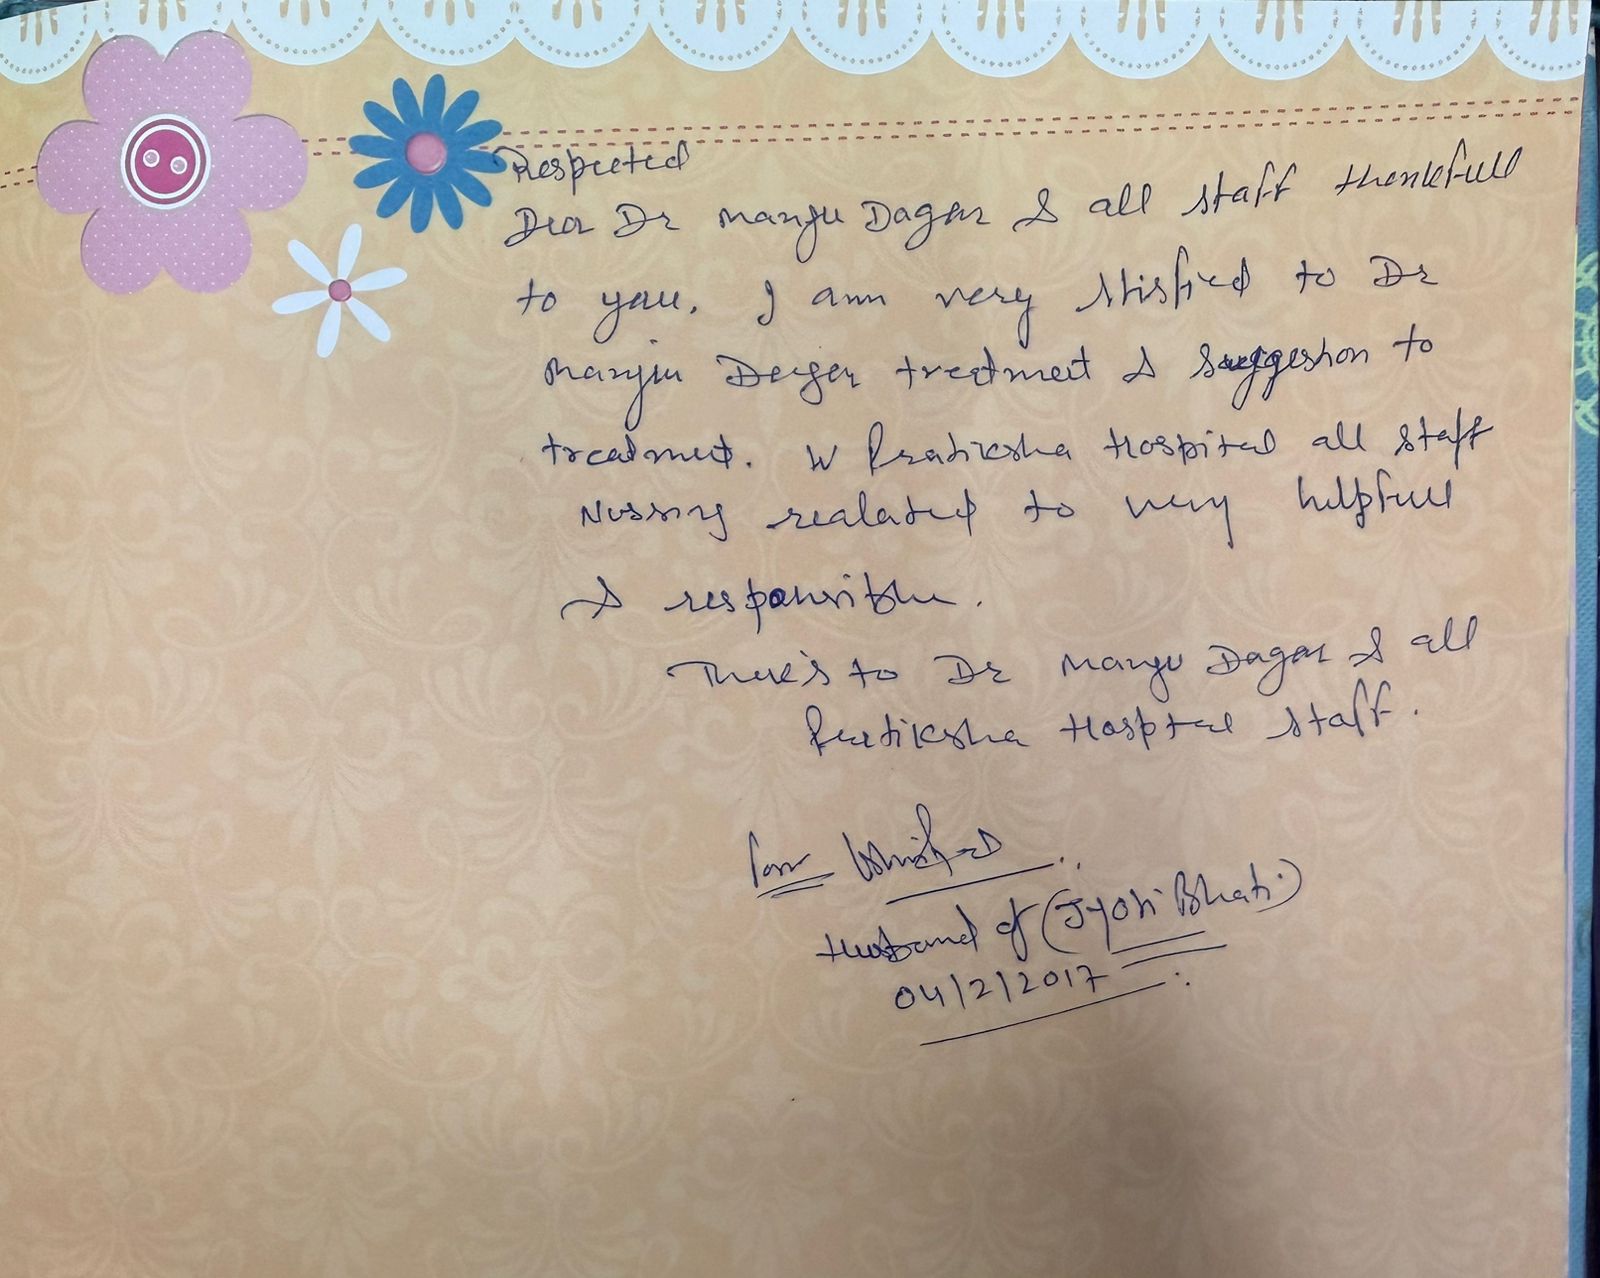 Respected
Dear Dr Manju Dagar & all staff thenkfull
to you. I am very stisfied to Dr
Manju Dagar treetment & Suggestion to
treatment. W Pratiksha Hospital all staff
Nursing realated to very helpfull
& responsible.
Thank's to Dr Manju Dagar & all
Pratiksha Hosptal staff.
Husband of (Jyoti Bhati)
04/2/2017